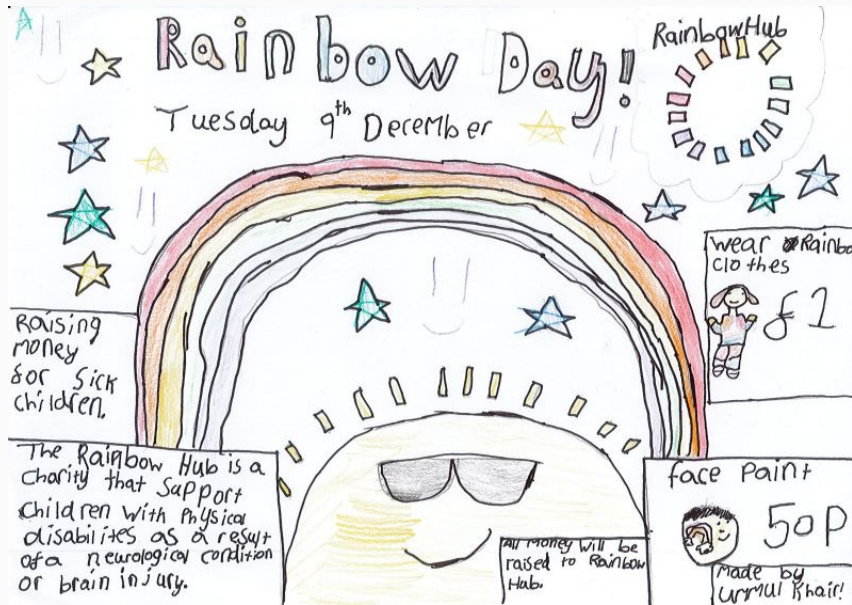 Rainbow Day!
RainbowHub
Tuesday 9th December
wear Rainbo
clothes
£1
Raising
money
for sick
children.
The Rainbow Hub is a
charity that support
children with Physical
disabilites as a result
of a neurological condition
or brain injury.
face paint
50P
All money will be
raised to Rainbow
Hub.
Made by
Ummul Khair!